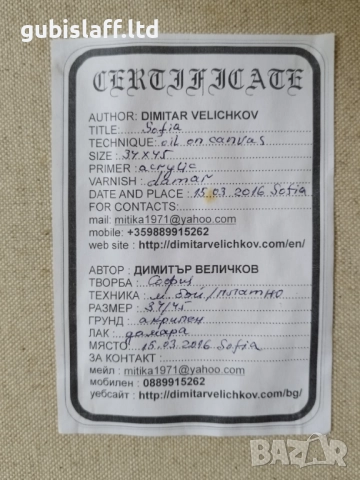 gubislaff.ltd
CERTIFICATE
AUTHOR: DIMITAR VELICHKOV
TITLE : Sofia
TECHNIQUE: oil on canvas
SIZE : 34x45
PRIMER : acrylic
VARNISH : damar
DATE AND PLACE : 15.03 2016 Sofia
FOR CONTACTS:
mail: mitika1971@yahoo.com
mobile: +359889915262
web site : http://dimitarvelichkov.com/en/
АВТОР : ДИМИТЪР ВЕЛИЧКОВ
ТВОРБА : София
ТЕХНИКА : м. бои/платно
РАЗМЕР :
ГРУНД : акрилен
ЛАК : дамара
МЯСТО : 15.03.2016 Sofia
ЗА КОНТАКТ :
мейл : mitika1971@yahoo.com
мобилен : 0889915262
уебсайт : http://dimitarvelichkov.com/bg/
BAZAR